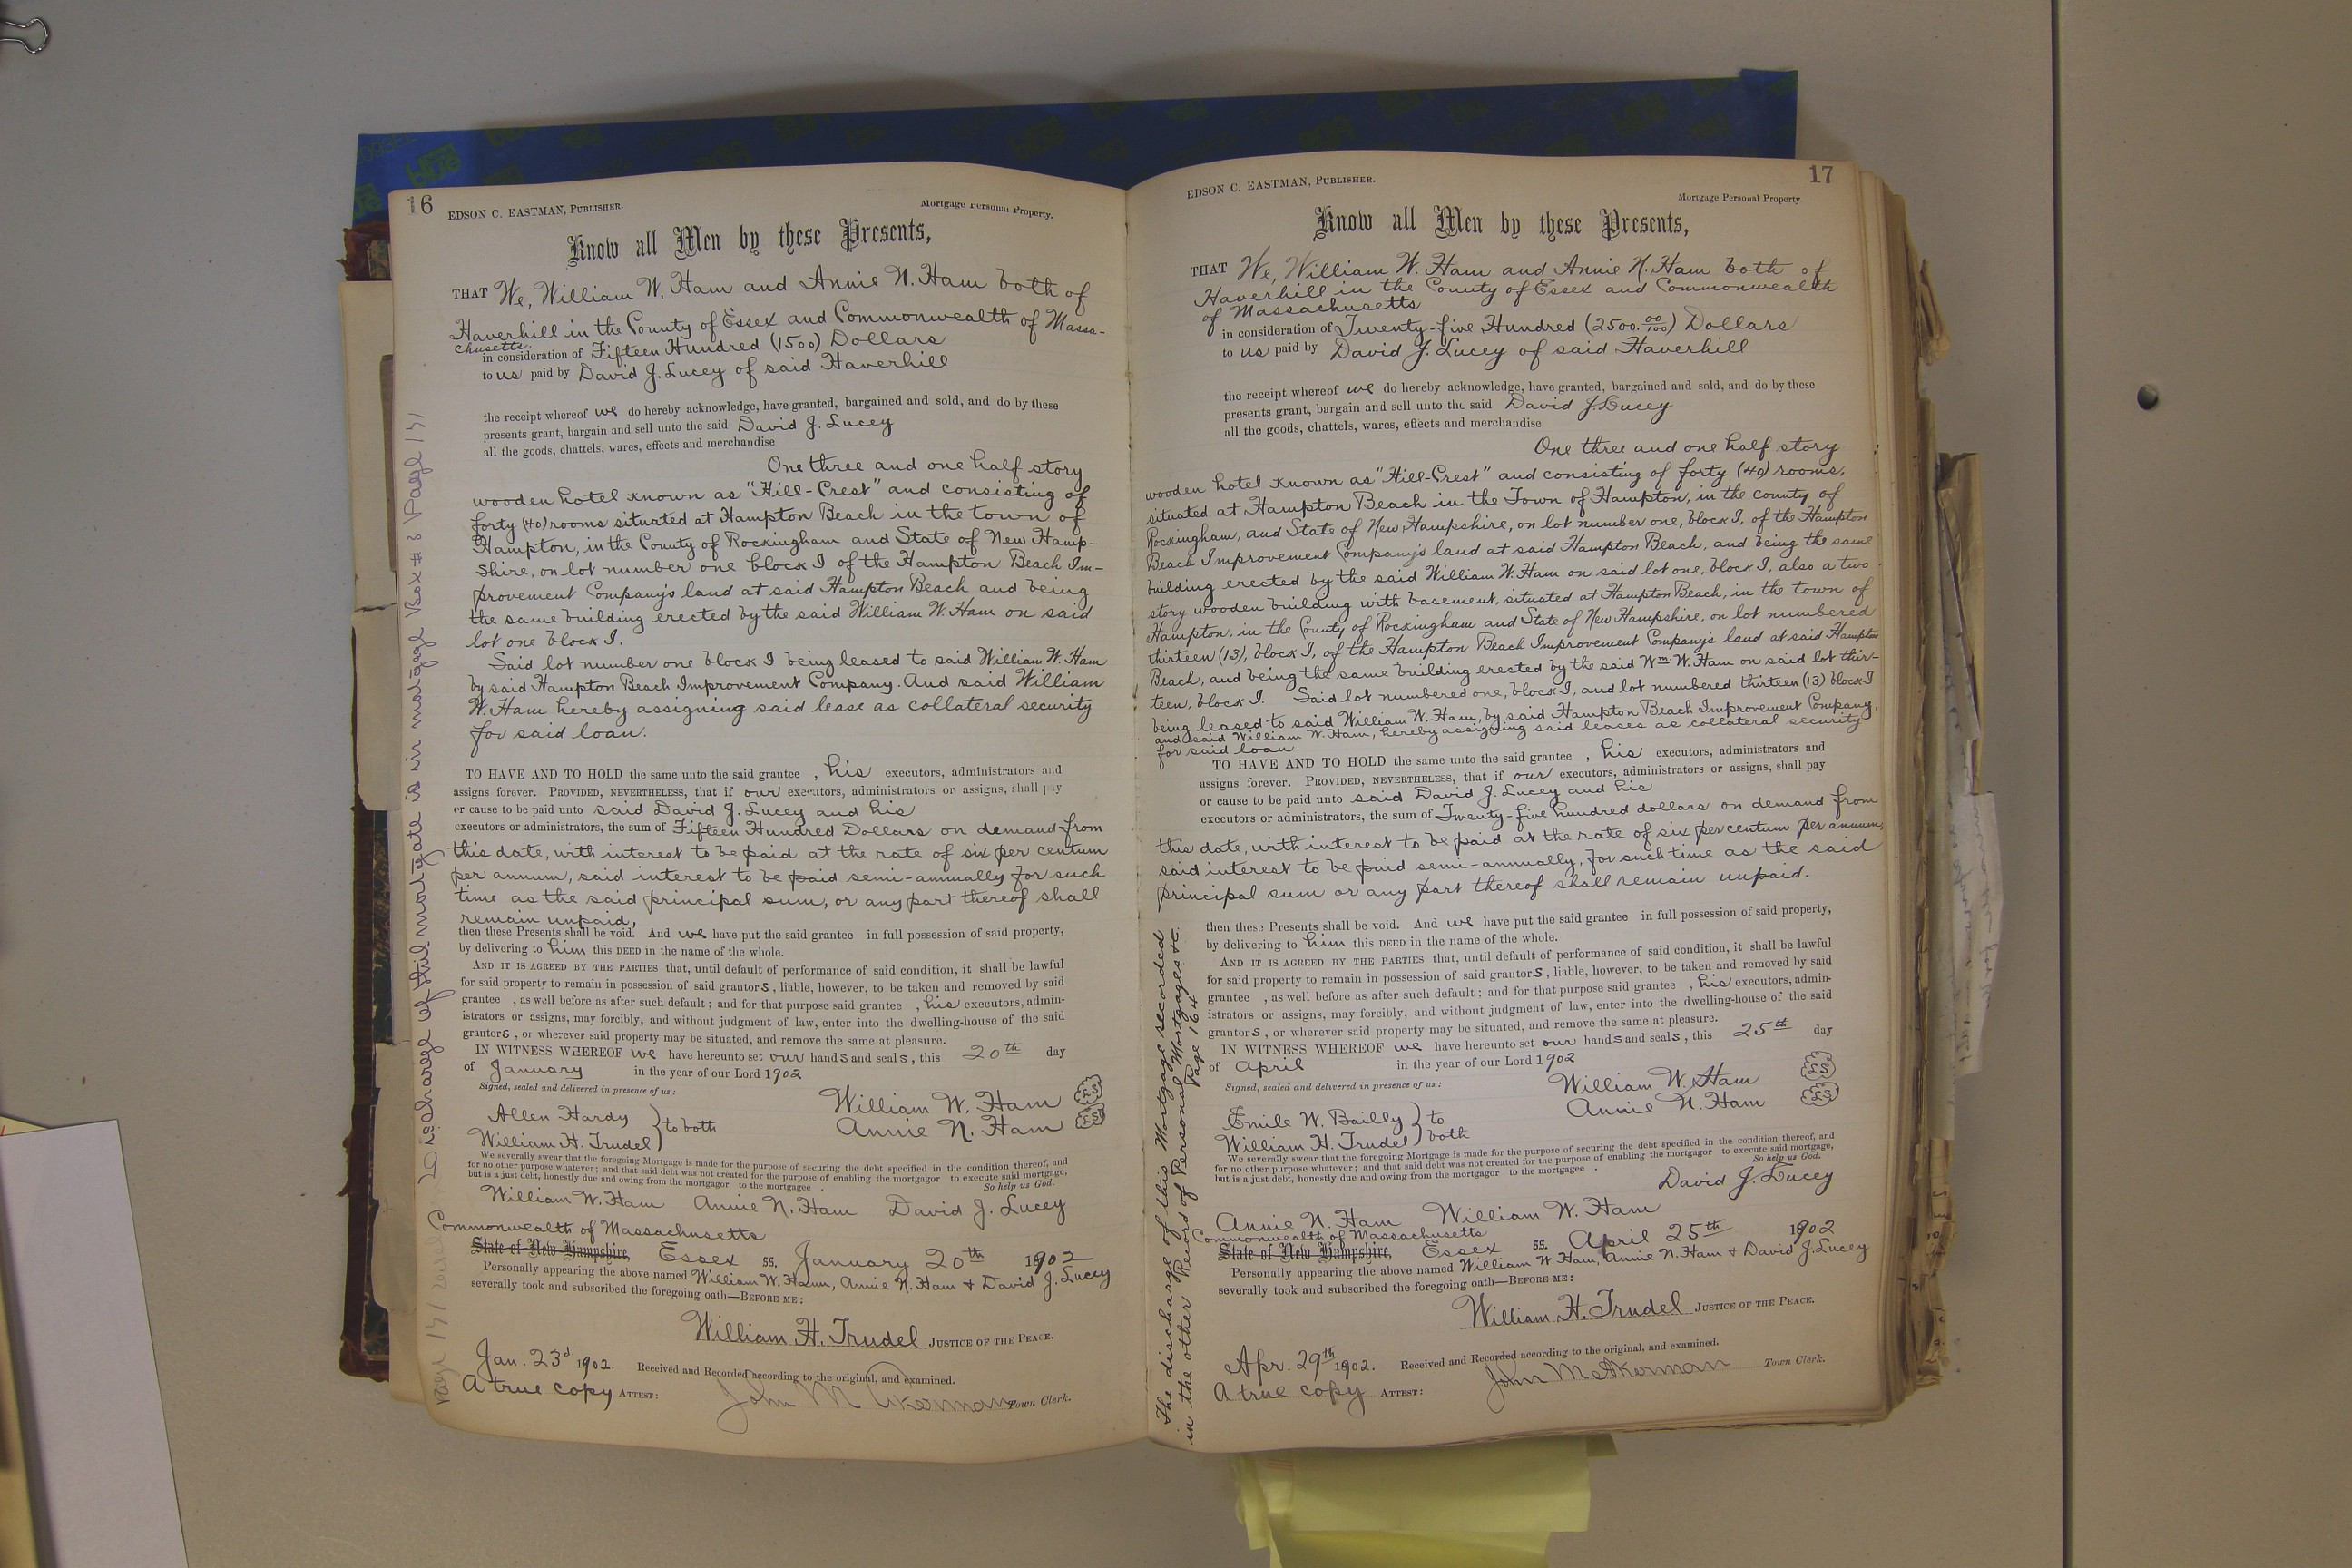 16
EDSON C. EASTMAN, PUBLISHER.
Mortgage Personal Property.
Know all Men by these Presents,
THAT We, William W. Ham and Annie N. Ham both of
Haverhill in the County of Essex and Commonwealth of Massa-
chusetts.
in consideration of Fifteen Hundred (1500) Dollars
to us paid by David J. Lucey of said Haverhill
the receipt whereof we do hereby acknowledge, have granted, bargained and sold, and do by these
presents grant, bargain and sell unto the said David J. Lucey
all the goods, chattels, wares, effects and merchandise
One three and one half story
wooden hotel known as "Hill-Crest" and consisting of
forty (40) rooms situated at Hampton Beach in the town of
Hampton, in the County of Rockingham and State of New Hamp-
shire, on lot number one block I of the Hampton Beach Im-
provement Company's land at said Hampton Beach and being
the same building erected by the said William W. Ham on said
lot one block I.
Said lot number one block I being leased to said William W. Ham
by said Hampton Beach Improvement Company. And said William
W. Ham hereby assigning said lease as collateral security
for said loan.
TO HAVE AND TO HOLD the same unto the said grantee , his executors, administrators and
assigns forever. PROVIDED, NEVERTHELESS, that if our executors, administrators or assigns, shall pay
or cause to be paid unto said David J. Lucey and his
executors or administrators, the sum of Fifteen Hundred Dollars on demand from
this date, with interest to be paid at the rate of six per centum
per annum, said interest to be paid semi-annually for such
time as the said principal sum, or any part thereof shall
remain unpaid,
then these Presents shall be void. And we have put the said grantee in full possession of said property,
by delivering to him this DEED in the name of the whole.
AND IT IS AGREED BY THE PARTIES that, until default of performance of said condition, it shall be lawful
for said property to remain in possession of said grantors, liable, however, to be taken and removed by said
grantee , as well before as after such default; and for that purpose said grantee , his executors, admin-
istrators or assigns, may forcibly, and without judgment of law, enter into the dwelling-house of the said
grantors, or wherever said property may be situated, and remove the same at pleasure.
IN WITNESS WHEREOF we have hereunto set our hands and seals, this 20th day
of January in the year of our Lord 1902
Signed, sealed and delivered in presence of us:
William W. Ham LS
Allen Hardy
Annie N. Ham LS
William H. Trudel } to both
We severally swear that the foregoing Mortgage is made for the purpose of securing the debt specified in the condition thereof, and
for no other purpose whatever; and that said debt was not created for the purpose of enabling the mortgagor to execute said mortgage,
but is a just debt, honestly due and owing from the mortgagor to the mortgagee . So help us God.
William W. Ham Annie N. Ham David J. Lucey
Commonwealth of Massachusetts
State of New Hampshire, Essex ss. January 20th 1902
Personally appearing the above named William W. Ham, Annie N. Ham + David J. Lucey
severally took and subscribed the foregoing oath—BEFORE ME:
William H. Trudel JUSTICE OF THE PEACE.
Jan. 23d 1902. Received and Recorded according to the original, and examined.
A true copy ATTEST: John M Akerman Town Clerk.
Discharge of this mortgage is in mortgage Box #3 Page 171
17
EDSON C. EASTMAN, PUBLISHER.
Mortgage Personal Property.
Know all Men by these Presents,
THAT We, William W. Ham and Annie N. Ham both of
Haverhill in the County of Essex and Commonwealth
of Massachusetts
in consideration of Twenty-five Hundred (2500.00/100) Dollars
to us paid by David J. Lucey of said Haverhill
the receipt whereof we do hereby acknowledge, have granted, bargained and sold, and do by these
presents grant, bargain and sell unto the said David J. Lucey
all the goods, chattels, wares, effects and merchandise
One three and one half story
wooden hotel known as "Hill-Crest" and consisting of forty (40) rooms,
situated at Hampton Beach in the Town of Hampton, in the county of
Rockingham, and State of New Hampshire, on lot number one, block I, of the Hampton
Beach Improvement Company's land at said Hampton Beach, and being the same
building erected by the said William W. Ham on said lot one, block I, also a two
story wooden building with basement, situated at Hampton Beach, in the town of
Hampton, in the County of Rockingham and State of New Hampshire, on lot numbered
thirteen (13), block I, of the Hampton Beach Improvement Company's land at said Hampton
Beach, and being the same building erected by the said Wm. W. Ham on said lot thir-
teen, block I. Said lot numbered one, block I, and lot numbered thirteen (13) block I
being leased to said William W. Ham, by said Hampton Beach Improvement Company,
and said William W. Ham, hereby assigning said leases as collateral security
for said loan.
TO HAVE AND TO HOLD the same unto the said grantee , his executors, administrators and
assigns forever. PROVIDED, NEVERTHELESS, that if our executors, administrators or assigns, shall pay
or cause to be paid unto said David J. Lucey and his
executors or administrators, the sum of Twenty-five hundred dollars on demand from
this date, with interest to be paid at the rate of six per centum per annum,
said interest to be paid semi-annually, for such time as the said
principal sum or any part thereof shall remain unpaid.
then these Presents shall be void. And we have put the said grantee in full possession of said property,
by delivering to him this DEED in the name of the whole.
AND IT IS AGREED BY THE PARTIES that, until default of performance of said condition, it shall be lawful
for said property to remain in possession of said grantors, liable, however, to be taken and removed by said
grantee , as well before as after such default; and for that purpose said grantee , his executors, admin-
istrators or assigns, may forcibly, and without judgment of law, enter into the dwelling-house of the said
grantors, or wherever said property may be situated, and remove the same at pleasure.
IN WITNESS WHEREOF we have hereunto set our hands and seals, this 25th day
of April in the year of our Lord 1902
Signed, sealed and delivered in presence of us:
William W. Ham LS
Annie N. Ham LS
Emile W. Bailly } to
William H. Trudel } both
We severally swear that the foregoing Mortgage is made for the purpose of securing the debt specified in the condition thereof, and
for no other purpose whatever; and that said debt was not created for the purpose of enabling the mortgagor to execute said mortgage,
but is a just debt, honestly due and owing from the mortgagor to the mortgagee . So help us God.
David J. Lucey
Annie N. Ham William W. Ham
Commonwealth of Massachusetts
State of New Hampshire, Essex ss. April 25th 1902
Personally appearing the above named William W. Ham, Annie N. Ham + David J. Lucey
severally took and subscribed the foregoing oath—BEFORE ME:
William H. Trudel JUSTICE OF THE PEACE.
Apr. 29th 1902. Received and Recorded according to the original, and examined.
A true copy ATTEST: John M Akerman Town Clerk.
The discharge of this Mortgage recorded
in the other Record of Personal Mortgages &c.
Page 164